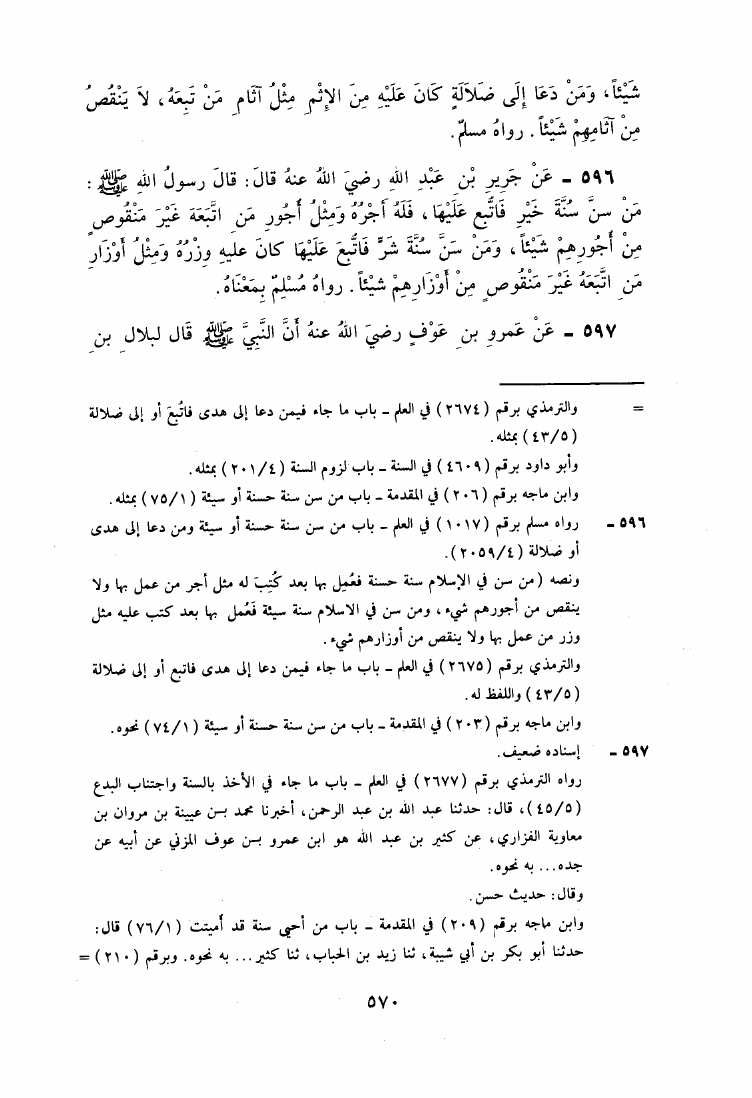 شَيْئاً، وَمَنْ دَعَا إِلَى ضَلاَلَةٍ كَانَ عَلَيْهِ مِنَ الإِثْمِ مِثْلُ آثَامِ مَنْ تَبِعَهُ، لاَ يَنْقُصُ
مِنْ آثَامِهِمْ شَيْئاً. رواهُ مسلمٌ.
٥٩٦ ـ عَنْ جَرِيرِ بْنِ عَبْدِ اللهِ رضيَ اللهُ عنهُ قالَ: قالَ رسولُ اللهِ ﷺ:
مَنْ سنَّ سُنَّةَ خَيْرٍ فَاتُّبِعَ عَلَيْهَا، فَلَهُ أَجْرُهُ وَمِثْلُ أُجُورِ مَنِ اتَّبَعَهُ غَيْرَ مَنْقُوصٍ
مِنْ أُجُورِهِمْ شَيْئاً، وَمَنْ سَنَّ سُنَّةَ شَرٍّ فَاتُّبِعَ عَلَيْهَا كانَ عليهِ وِزْرُهُ وَمِثْلُ أَوْزَارِ
مَنِ اتَّبَعَهُ غَيْرَ مَنْقُوصٍ مِنْ أَوْزَارِهِمْ شيْئاً. رواهُ مُسْلِمٌ بِمَعْنَاهُ.
٥٩٧ ـ عَنْ عَمرِو بنِ عَوْفٍ رضيَ اللهُ عنهُ أنَّ النَّبيَّ ﷺ قَال لبلالِ بنِ
= والترمذي برقم (٢٦٧٤) في العلم ـ باب ما جاء فيمن دعا إلى هدى فاتُّبعَ أو إلى ضلالة
(٤٣/٥) بمثله.
وأبو داود برقم (٤٦٠٩) في السنة ـ باب لزوم السنة (٢٠١/٤) بمثله.
وابن ماجه برقم (٢٠٦) في المقدمة ـ باب من سن سنة حسنة أو سيئة (٧٥/١) بمثله.
٥٩٦ ـ رواه مسلم برقم (١٠١٧) في العلم ـ باب من سن سنة حسنة أو سيئة ومن دعا إلى هدى
أو ضلالة (٢٠٥٩/٤).
ونصه (من سن في الإسلام سنة حسنة فعُمِل بها بعد كُتِبَ له مثل أجر من عمل بها ولا
ينقص من أجورهم شيء، ومن سن في الاسلام سنة سيئة فَعُمل بها بعد كتب عليه مثل
وزر من عمل بها ولا ينقص من أوزارهم شيء.
والترمذي برقم (٢٦٧٥) في العلم ـ باب ما جاء فيمن دعا إلى هدى فاتبع أو إلى ضلالة
(٤٣/٥) واللفظ له.
وابن ماجه برقم (٢٠٣) في المقدمة ـ باب من سن سنة حسنة أو سيئة (٧٤/١) نحوه.
٥٩٧ ـ إسناده ضعيف.
رواه الترمذي برقم (٢٦٧٧) في العلم ـ باب ما جاء في الأخذ بالسنة واجتناب البدع
(٤٥/٥)، قال: حدثنا عبد الله بن عبد الرحمن، أخبرنا محمد بن عيينة بن مروان بن
معاوية الفزاري، عن كثير بن عبد الله هو ابن عمرو بن عوف المزني عن أبيه عن
جده... به نحوه.
وقال: حديث حسن.
وابن ماجه برقم (٢٠٩) في المقدمة ـ باب من أحيى سنة قد أُميتت (٧٦/١) قال:
حدثنا أبو بكر بن أبي شيبة، ثنا زيد بن الحباب، ثنا كثير... به نحوه. وبرقم (٢١٠) =
٥٧٠